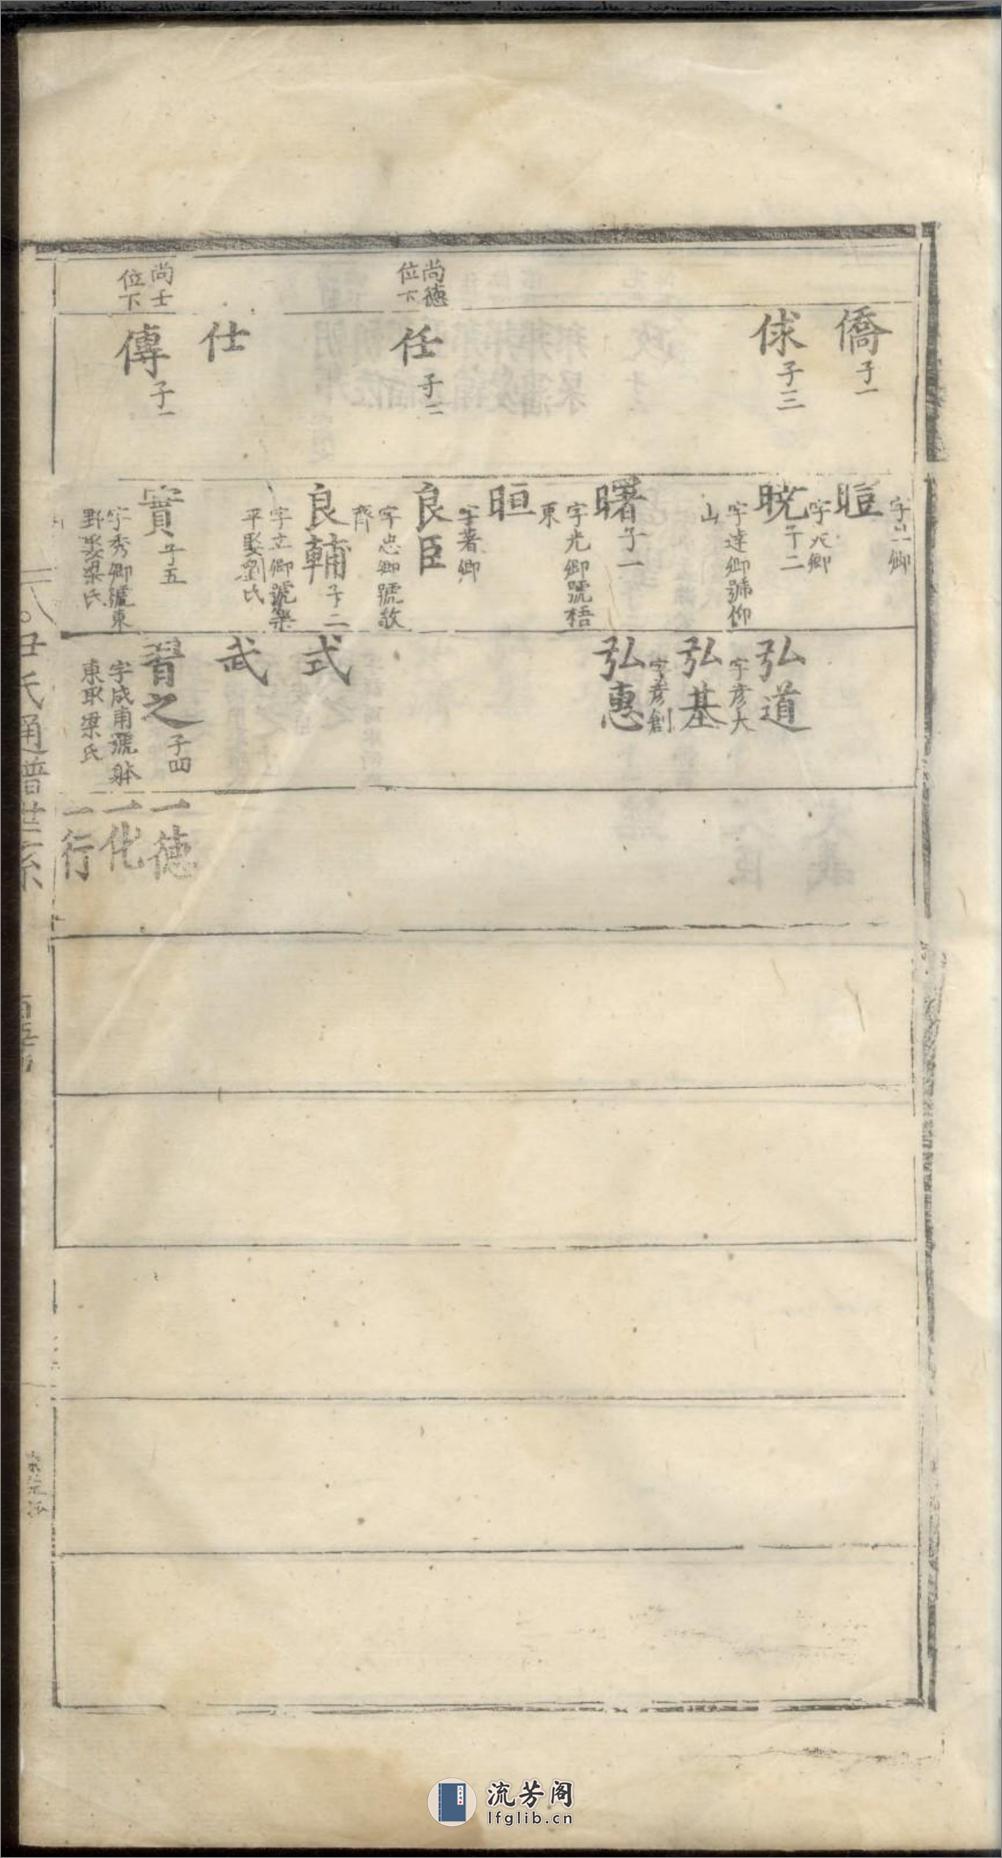 僑 子一
俅 子三
尚德
位下
任 子二
仕
尚士
位下
傳 子一
暟
字九卿
晥 子二
字達卿號仰
山
曙 子一
字光卿號梧
東
晅
字著卿
良臣
字忠卿號敬
齊
良輔 子二
字立卿號樂
平娶劉氏
實 子五
字秀卿號東
野娶梁氏
弘道
字彥大
弘基
字彥創
弘惠
式
武
習之 子四
字成甫號
東取梁氏
一德
一化
一行
氏通譜世系
流芳阁
lfglib.cn